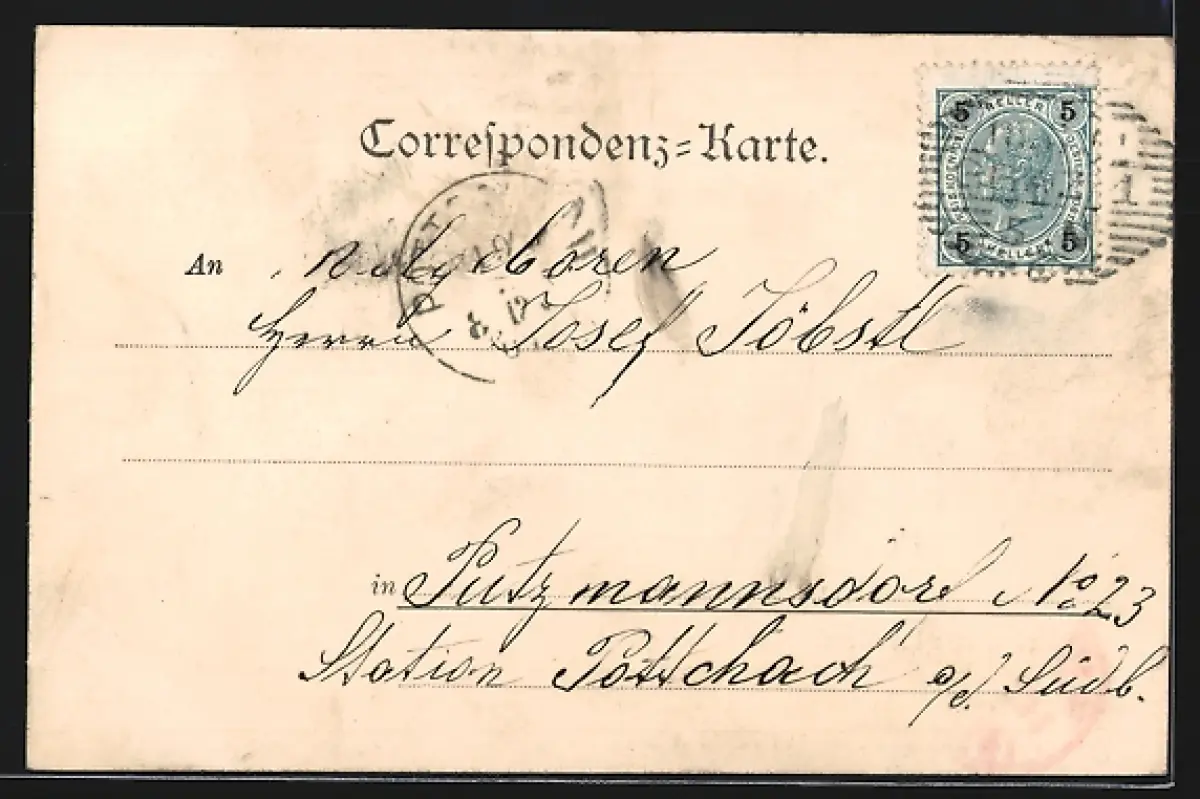 Correspondenz-Karte.
5 HELLER 5
5 HELLER 5
1
An Wohlgeboren
Herrn Josef Jöbstl
in Putzmannsdorf No 23
Station Pottschach a/d. Südb.